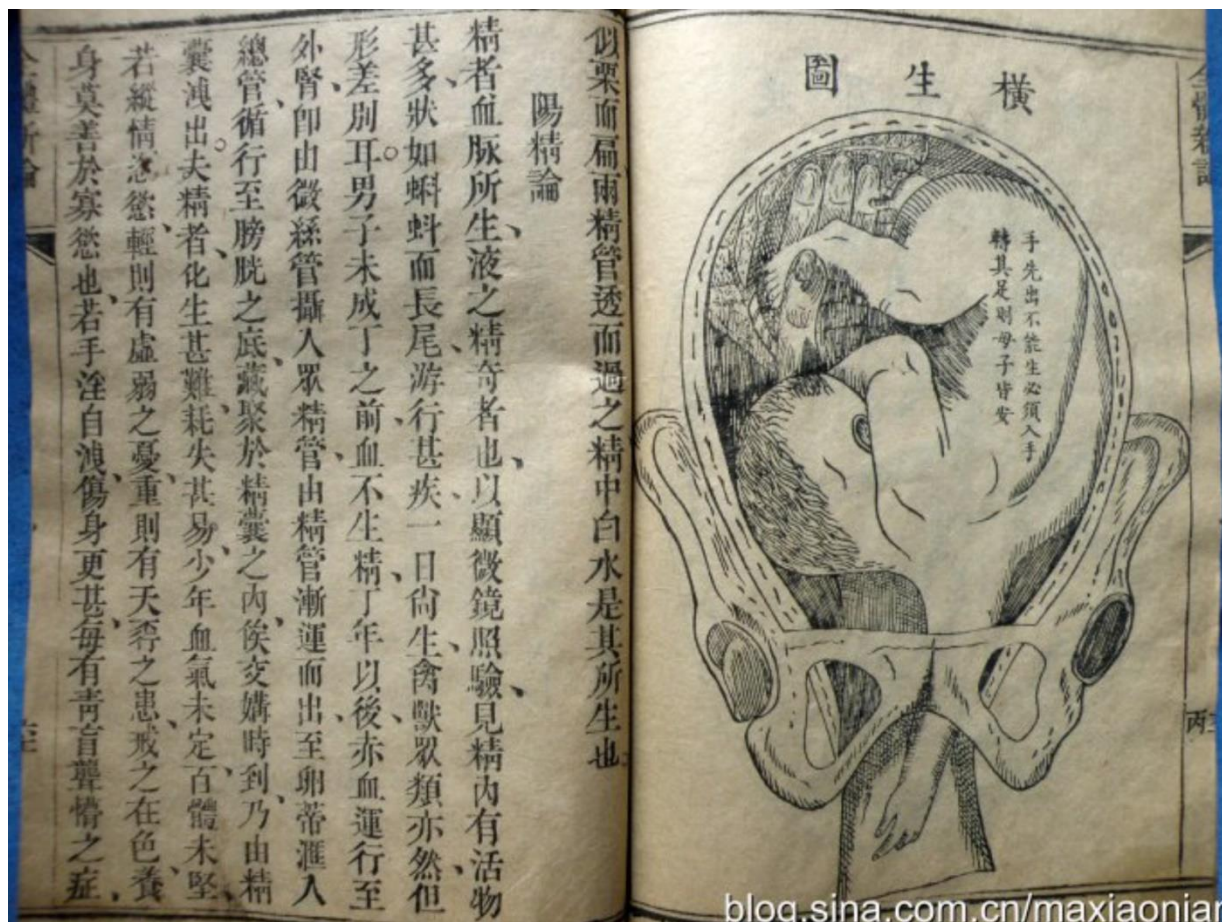 全體新論
橫生圖
手先出不能生必須入手
轉其足則母子皆安
似栗而扁兩精管透而過之精中白水是其所生也
陽精論
精者血脉所生液之精奇者也以顯微鏡照驗見精內有活物
甚多、狀如蝌蚪而長尾、游行甚疾、一日尙生、禽獸眾類亦然、但
形差別耳。男子未成丁之前血不生精、丁年以後亦血運行至
外腎、卽由微絲管攝入眾精管、由精管漸運而出、至卵蒂滙入
總管、循行至膀胱之底、藏聚於精囊之內、俟交媾時到、乃由精
囊洩出。夫精者、化生甚難、耗失甚易、少年血氣未定、百體未堅、
若縱情恣慾、輕則有虛弱之憂、重則有夭之患、戒之在色、養
身莫善於寡慾也、若手淫自洩、傷身更甚、每有靑盲聾憒之症、
blog.sina.com.cn/maxiaonian